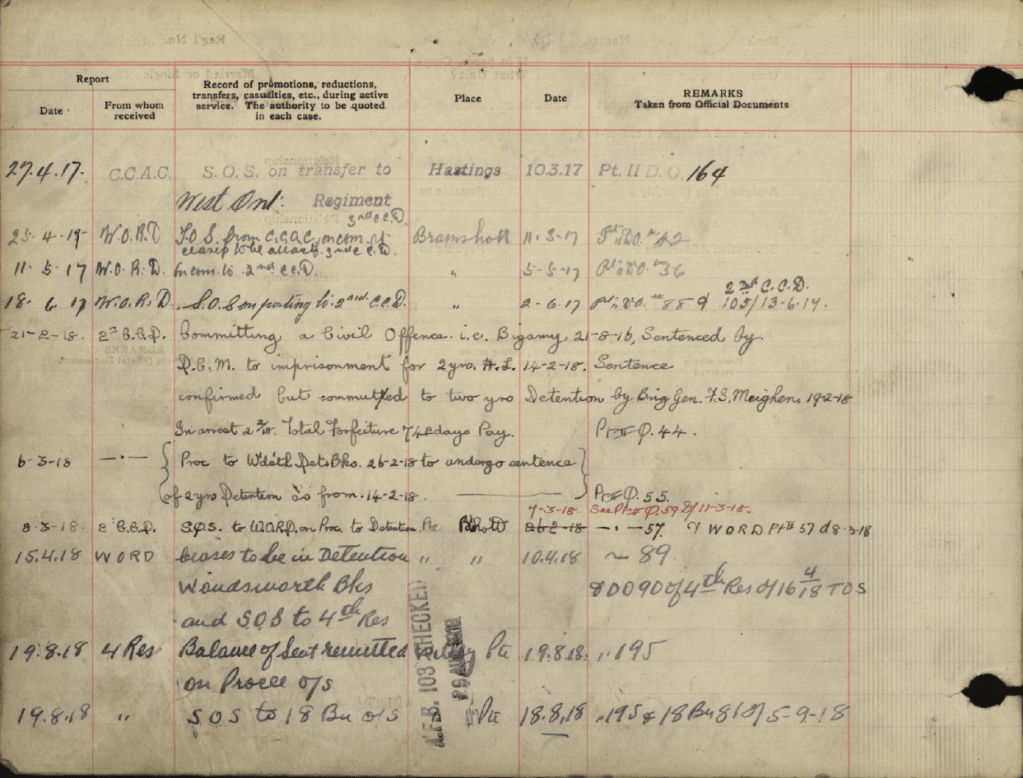 Report
Date
From whom received
Record of promotions, reductions, transfers, casualties, etc., during active service. The authority to be quoted in each case.
Place
Date
REMARKS
Taken from Official Documents
27.4.17. C.C.A.C. S.O.S. on transfer to Hastings 10.3.17 Pt. II D.O. 164
West Ont. Regiment
3rd C.C.D.
25-4-17 W.O.R.D T.O.S. from C.C.A.C. on com. Bramshott 11-3-17 42
ceases to be attach. 3rd C.C.D.
11-5-17 W.O.R.D. on com. to 2nd C.C.D. " 5-5-17 36
2nd C.C.D.
18-6-17 W.O.R.D. S.O.S on posting to 2nd C.C.D. " 2-6-17 88 & 105/13-6-17.
21-2-18. 2nd C.C.D. Committing a Civil Offence. i.e. Bigamy, 21-8-16, Sentenced by
D.C.M. to imprisonment for 2 yrs. H.L. 14-2-18. Sentence
confirmed but commuted to two yrs Detention by Brig Gen. F.S. Meighen 19-2-18
In arrest Total Forfeiture days Pay. Pt II O. 44.
6-3-18 — · — Proc to Detn Bks. 26-2-18 to undergo sentence
of 2 yrs Detention as from 14-2-18. Pt II O. 55.
7-3-18. See Pt II O. 59 d/ 11-3-18.
8-3-18. 2 C.C.D. S.O.S. to W.O.R.D. on Proc to Detention Pte B'hott 26-2-18 — · — 57. & WORD Pt II 57 d 8-3-18
15.4.18 WORD ceases to be in Detention " " 10.4.18 ~ 89.
Wandsworth Bks & DO 90 of 4th Res of 16 4/18 TOS
and S.O.S to 4th Res
19.8.18 4 Res Balance of Sent remitted Pte 19.8.18. " 195
on Procee o/s
19.8.18 " SOS to 18 Bn o/s Pte 18.8.18 " 195 & 18 Bn 81 of 5-9-18
A.F.B. 103 CHECKED